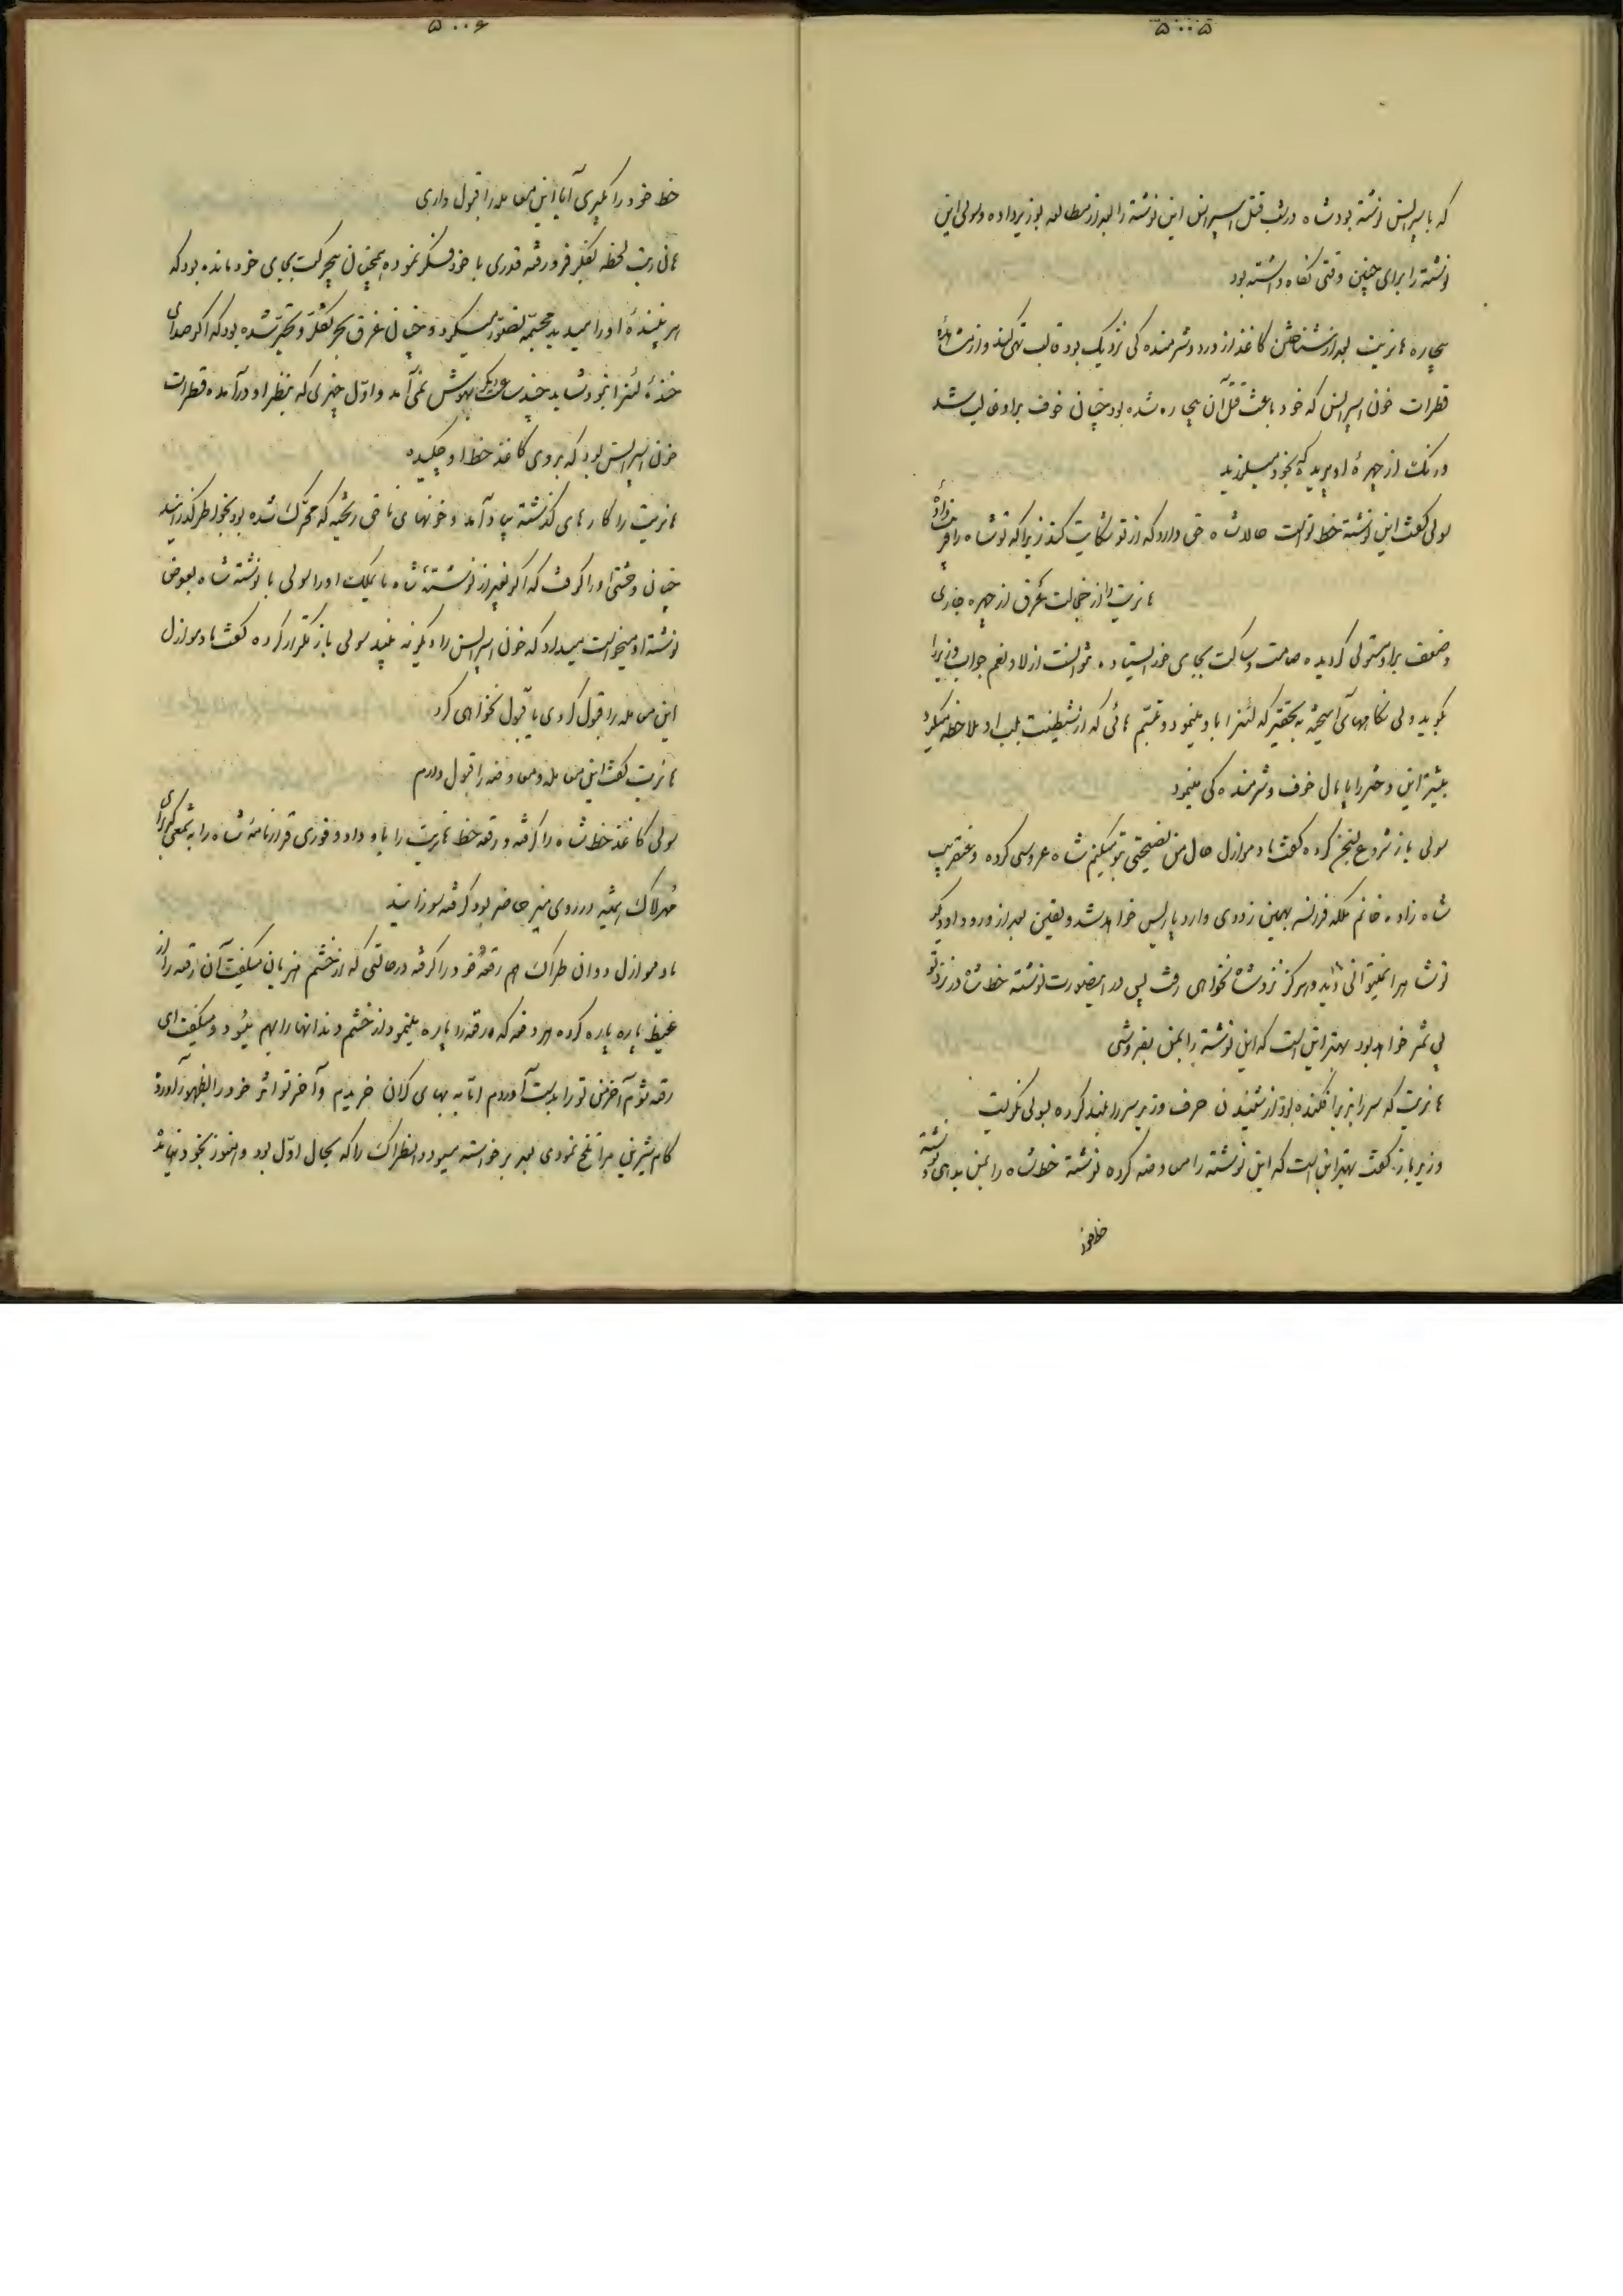 ۵۰۰۵
که باسپرانس نوشته بود شاه در شب قتل اسپرانس این نوشته را بعد از مطالعه بوزیر داده و لولی این
نوشته را برای چنین وقتی نگاه داشته بود
بیچاره هانریت بعد از شناختن کاغذ از درد و شرمنده کی نزدیک بود قالب تهی کند و از مشاهده
قطرات خون اسپرانس که خود باعث قتل آن بیچاره شده بود چنان خوف بر او غالب شد
و رنگ از چهرهٔ او پرید که بخود میلرزید
سولی گفت این نوشته خط تو است حالا شاه حق دارد که از تو شکایت کند زیرا که تو شاه را فریب دادهٔ
هانریت را از خجالت عرق از چهره جاری
و ضعف بر او مستولی گردیده صامت و ساکت بجای خود ایستاده نتوانست از لا و نعم جواب وزیر را
بگوید ولی نگاههای آمیخته به تحقیر که لئنرا باو مینمود و تبسم هائی که از شیطنت بلب او ملاحظه میکرد
بیشتر این دختر را پامال خوف و شرمنده کی مینمود
سولی باز شروع بسخن کرده گفت مادموازل حال من نصیحتی بتو میکنم شاه عروسی کرده و عنقریب
شاه زاده خانم ملکه فرانسه بهمین زودی وارد پاریس خواهد شد و یقین بعد از ورود او دیگر
تو شاه را نمیتوانی دید و هرگز نزد شاه نخواهی رفت پس در اینصورت نوشته خط شاه در نزد تو
بی ثمر خواهد بود بهتر این است که این نوشته را بمن بفروشی
هانریت که سر را بزیر افکنده بود از شنیدن حرف وزیر سر را بلند کرده بسولی نگریست
وزیر باز گفت بهتر این است که این نوشته را معاوضه کرده نوشته خط شاه را بمن بدهی و نوشته
خط خود
۵۰۰۶
خط خود را بگیری آیا این معامله را قبول داری
هانریت لحظه بفکر فرو رفته قدری با خود فکر نموده همچنان بیحرکت بجای خود مانده بود که
هر بینندهٔ او را میدید مجسمه تصور میکرد و چنان غرق بحر تفکر و تحیر شده بود که اگر صدای
خندهٔ لئنرا نبود شاید چند ساعت دیگر بهوش نمی آمد و اول چیزی که بنظر او در آمده قطرات
خون اسپرانس بود که بروی کاغذ خط او چکیده
هانریت را کارهای گذشته بیاد آمد و خونهای ناحق ریخته که محرک شده بود بخواطر گذرانید
چنان وحشتی او را گرفت که اگر بغیر از نوشتهٔ شاه یا یملک او را سولی با نوشته شاه بعوض
نوشته او میخواست میداد که خون اسپرانس را دیگر نه بیند سولی باز تکرار کرده گفت مادموازل
این معامله را قبول کردی یا قبول نخواهی کرد
هانریت گفت این معامله و معاوضه را قبول دارم
سولی کاغذ خط شاه را گرفته و رقعه خط هانریت را باو داد و فوری قرارنامهٔ شاه را بشمعی که برای
مهر لاک همیشه در روی میز حاضر بود گرفته سوزانید
مادموازل دوان طراک هم رقعهٔ خود را گرفته در حالتی که از خشم هذیان میگفت آن رقعه را از
غیظ پاره پاره کرده هر دفعه که رقعه را پاره مینمود از خشم دندانها را بهم میسود و میگفت ای
رقعه شوم آخر من تو را بدست آوردم اما به بهای گران خریدم و آخر تو اثر خود را بظهور آورده
کام شیرین مرا تلخ نمودی بعد برخواسته میرود دانطراک را که بحال اول بود و هنوز بخود نیامده